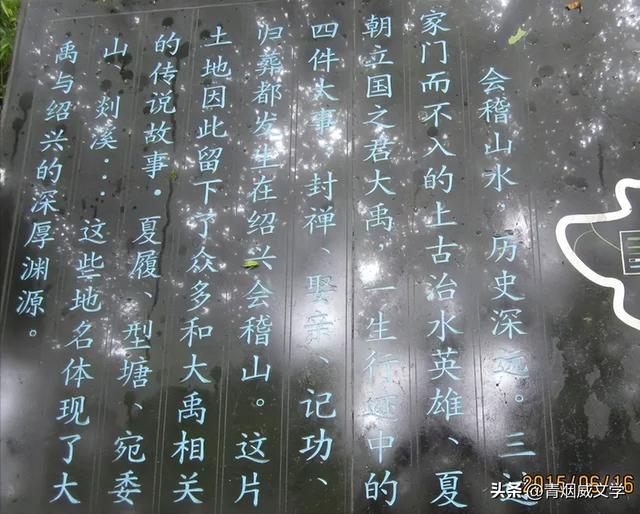 会稽山水，历史深远。三过
家门而不入的上古治水英雄、夏
朝立国之君大禹，一生行迹中的
四件大事：封禅、娶亲、记功、
归葬都发生在绍兴会稽山。这片
土地因此留下了众多和大禹相关
的传说故事。夏履、型塘、宛委
山、剡溪…这些地名体现了大
禹与绍兴的深厚渊源。
2015/06/16
头条 @青烟威文学